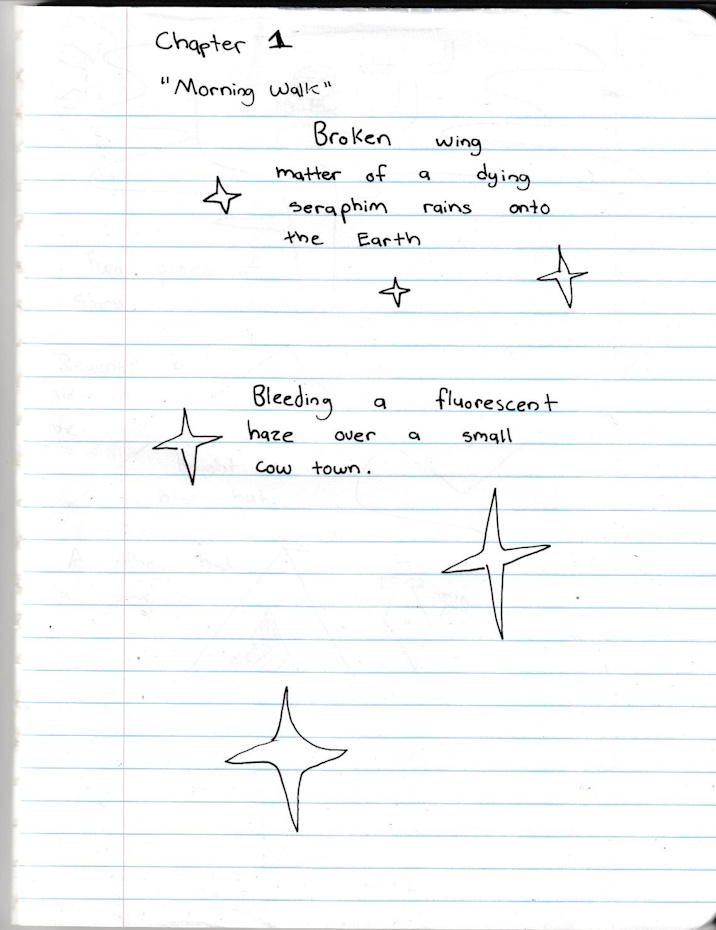 Chapter 1
"Morning Walk"
Broken wing
matter of a dying
seraphim rains onto
the Earth
Bleeding a fluorescent
haze over a small
cow town.